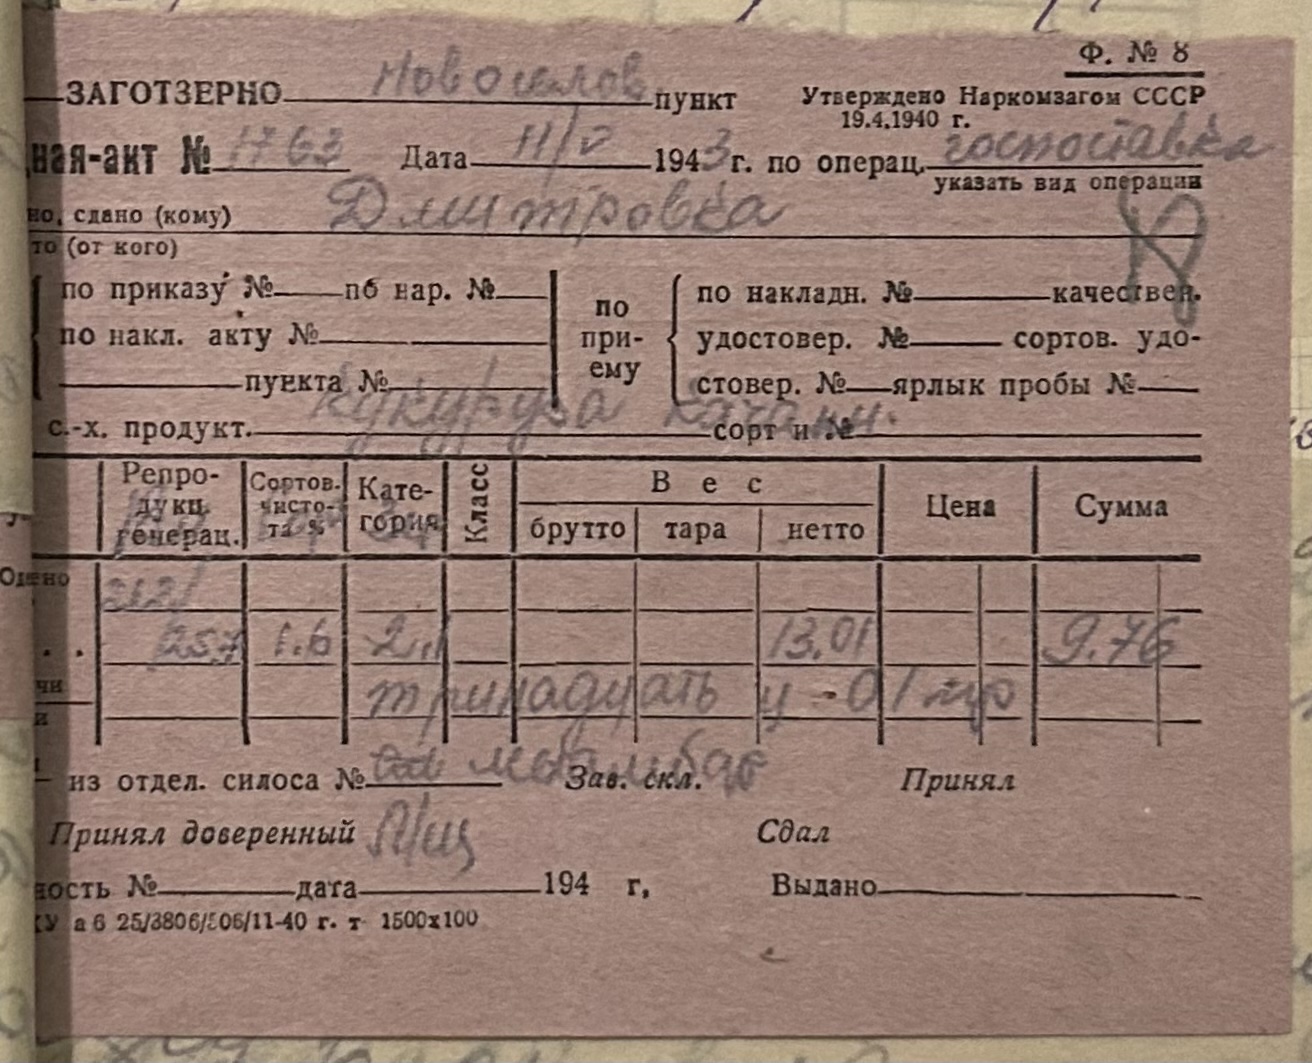 Ф. № 8
ЗАГОТЗЕРНО Новоселов пункт
Утверждено Наркомзагом СССР
19.4.1940 г.
ная-акт № 1763 Дата 11/V 1943 г. по операц. госпоставка
указать вид операции
но, сдано (кому) Дмитровка
то (от кого)
по приказу № по нар. №
по накл. акту №
пункта №
по при-ему
по накладн. № качествен.
удостовер. № сортов. удо-
стовер. № ярлык пробы №
с.-х. продукт. кукуруза качани. сорт и №
Репро-дукц. генерац. Сортов. чисто-та % Кате-гория Класс Вес Цена Сумма
брутто тара нетто
2121
257 1.6 2.1 13.01 9.76
чи тринадцать ц - 01
и
из отдел. силоса № Зав. скл. Принял
Принял доверенный Сдал
ность № дата 194 г, Выдано
а6 25/3806/506/11-40 г. т 1500х100